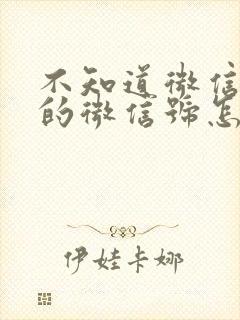 不知道微信
的微信號怎
伊娃卡娜